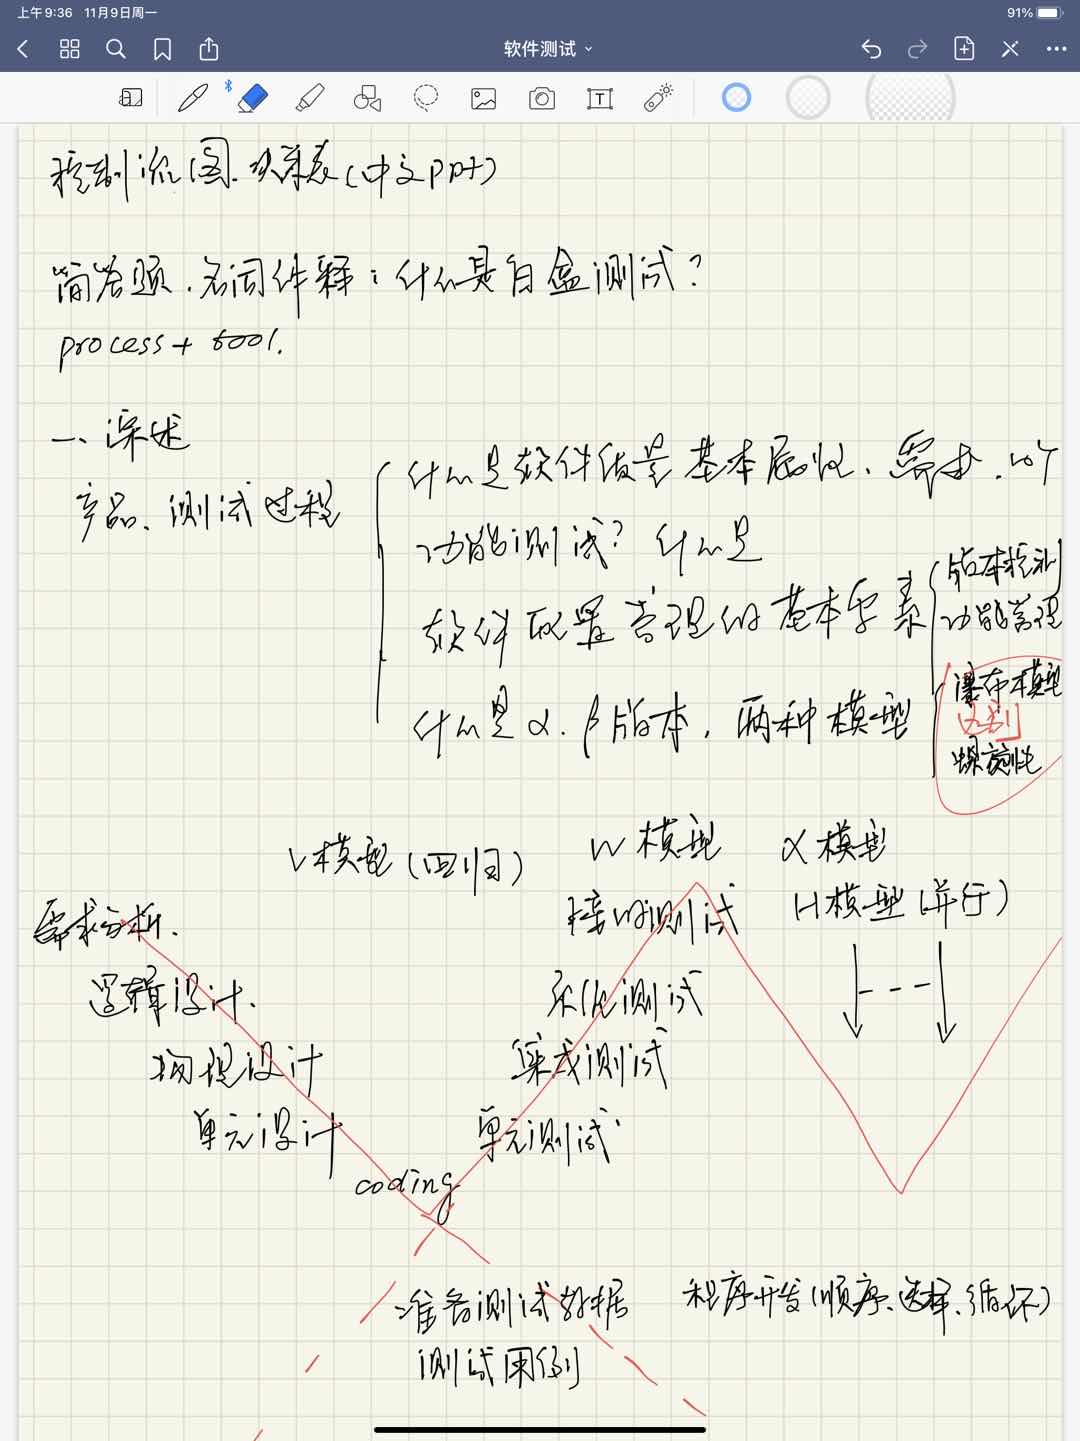 上午9:36 11月9日周一
91%
软件测试
T
控制流图.决策表(中文ppt)
简答题.名词解释:什么是白盒测试?
process + tool.
一、综述
产品、测试过程
什么是软件 基本 、需求.
功能测试? 什么是
软件配置管理的基本要素
版本控制
功能管理
什么是α.β版本,两种模型
瀑布模型
区别
螺旋性
V模型(回归)
W模型
X模型
H模型(并行)
需求分析.
逻辑设计.
物理设计
单元设计
coding
测试
测试
集成测试
单元测试
准备测试数据
测试用例
程序开发(顺序、选择、循环)